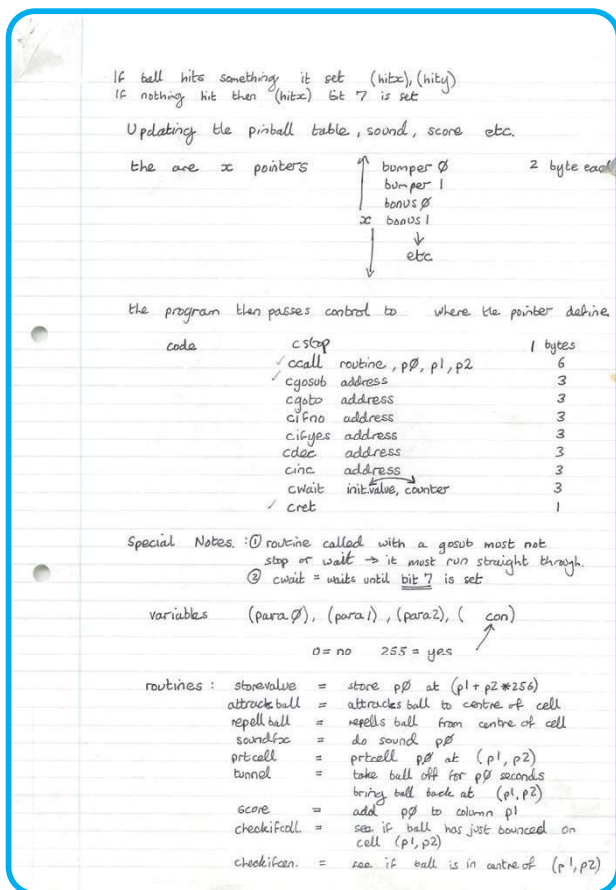 If ball hits something it set (hitx), (hity)
If nothing hit then (hitx) bit 7 is set
Updating the pinball table, sound, score etc.
the are x pointers bumper 0 2 byte each
bumper 1
bonus 0
x bonus 1
↓
etc
the program then passes control to where the pointer define.
code cstop 1 bytes
✓ ccall routine, p0, p1, p2 6
✓ cgosub address 3
cgoto address 3
cifno address 3
cifyes address 3
cdec address 3
cinc address 3
cwait init.value, counter 3
✓ cret 1
Special Notes. : ① routine called with a gosub must not
stop or wait → it most run straight through.
② cwait = waits until bit 7 is set
variables (para 0), (para 1), (para2), ( con)
0 = no 255 = yes
routines : storevalue = store p0 at (p1 + p2 * 256)
attractsball = attracks ball to centre of cell
repell ball = repells ball from centre of cell
soundfx = do sound p0
prtcell = prtcell p0 at (p1, p2)
tunnel = take ball off for p0 seconds
bring ball back at (p1, p2)
score = add p0 to column p1
checkifcoll. = see if ball has just bounced on
cell (p1, p2)
checkifcen. = see if ball is in centre of (p1, p2)